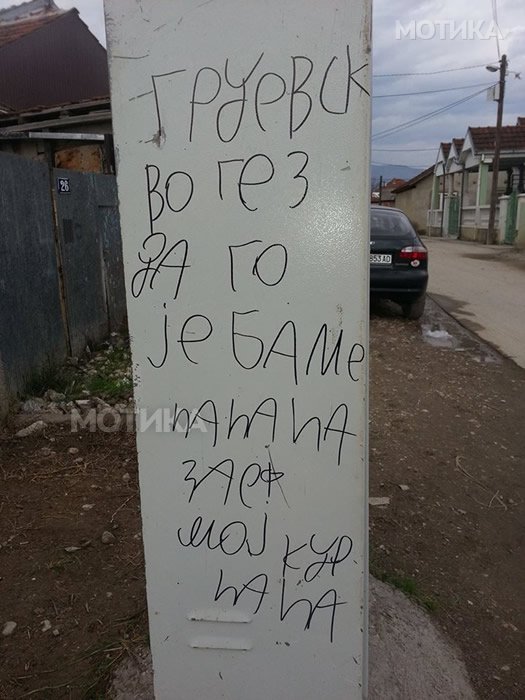 МОТИКА
ГРУЕВСК
ВО ГЕЗ
26
ДА ГО
853AO
ЈЕБАМЕ
МОТИКА
ћАћАћА
ЗАЕФ
МОЈ КУР.
ћАћА